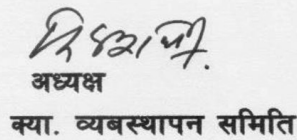 अध्यक्ष
क्या. व्यबस्थापन समिति